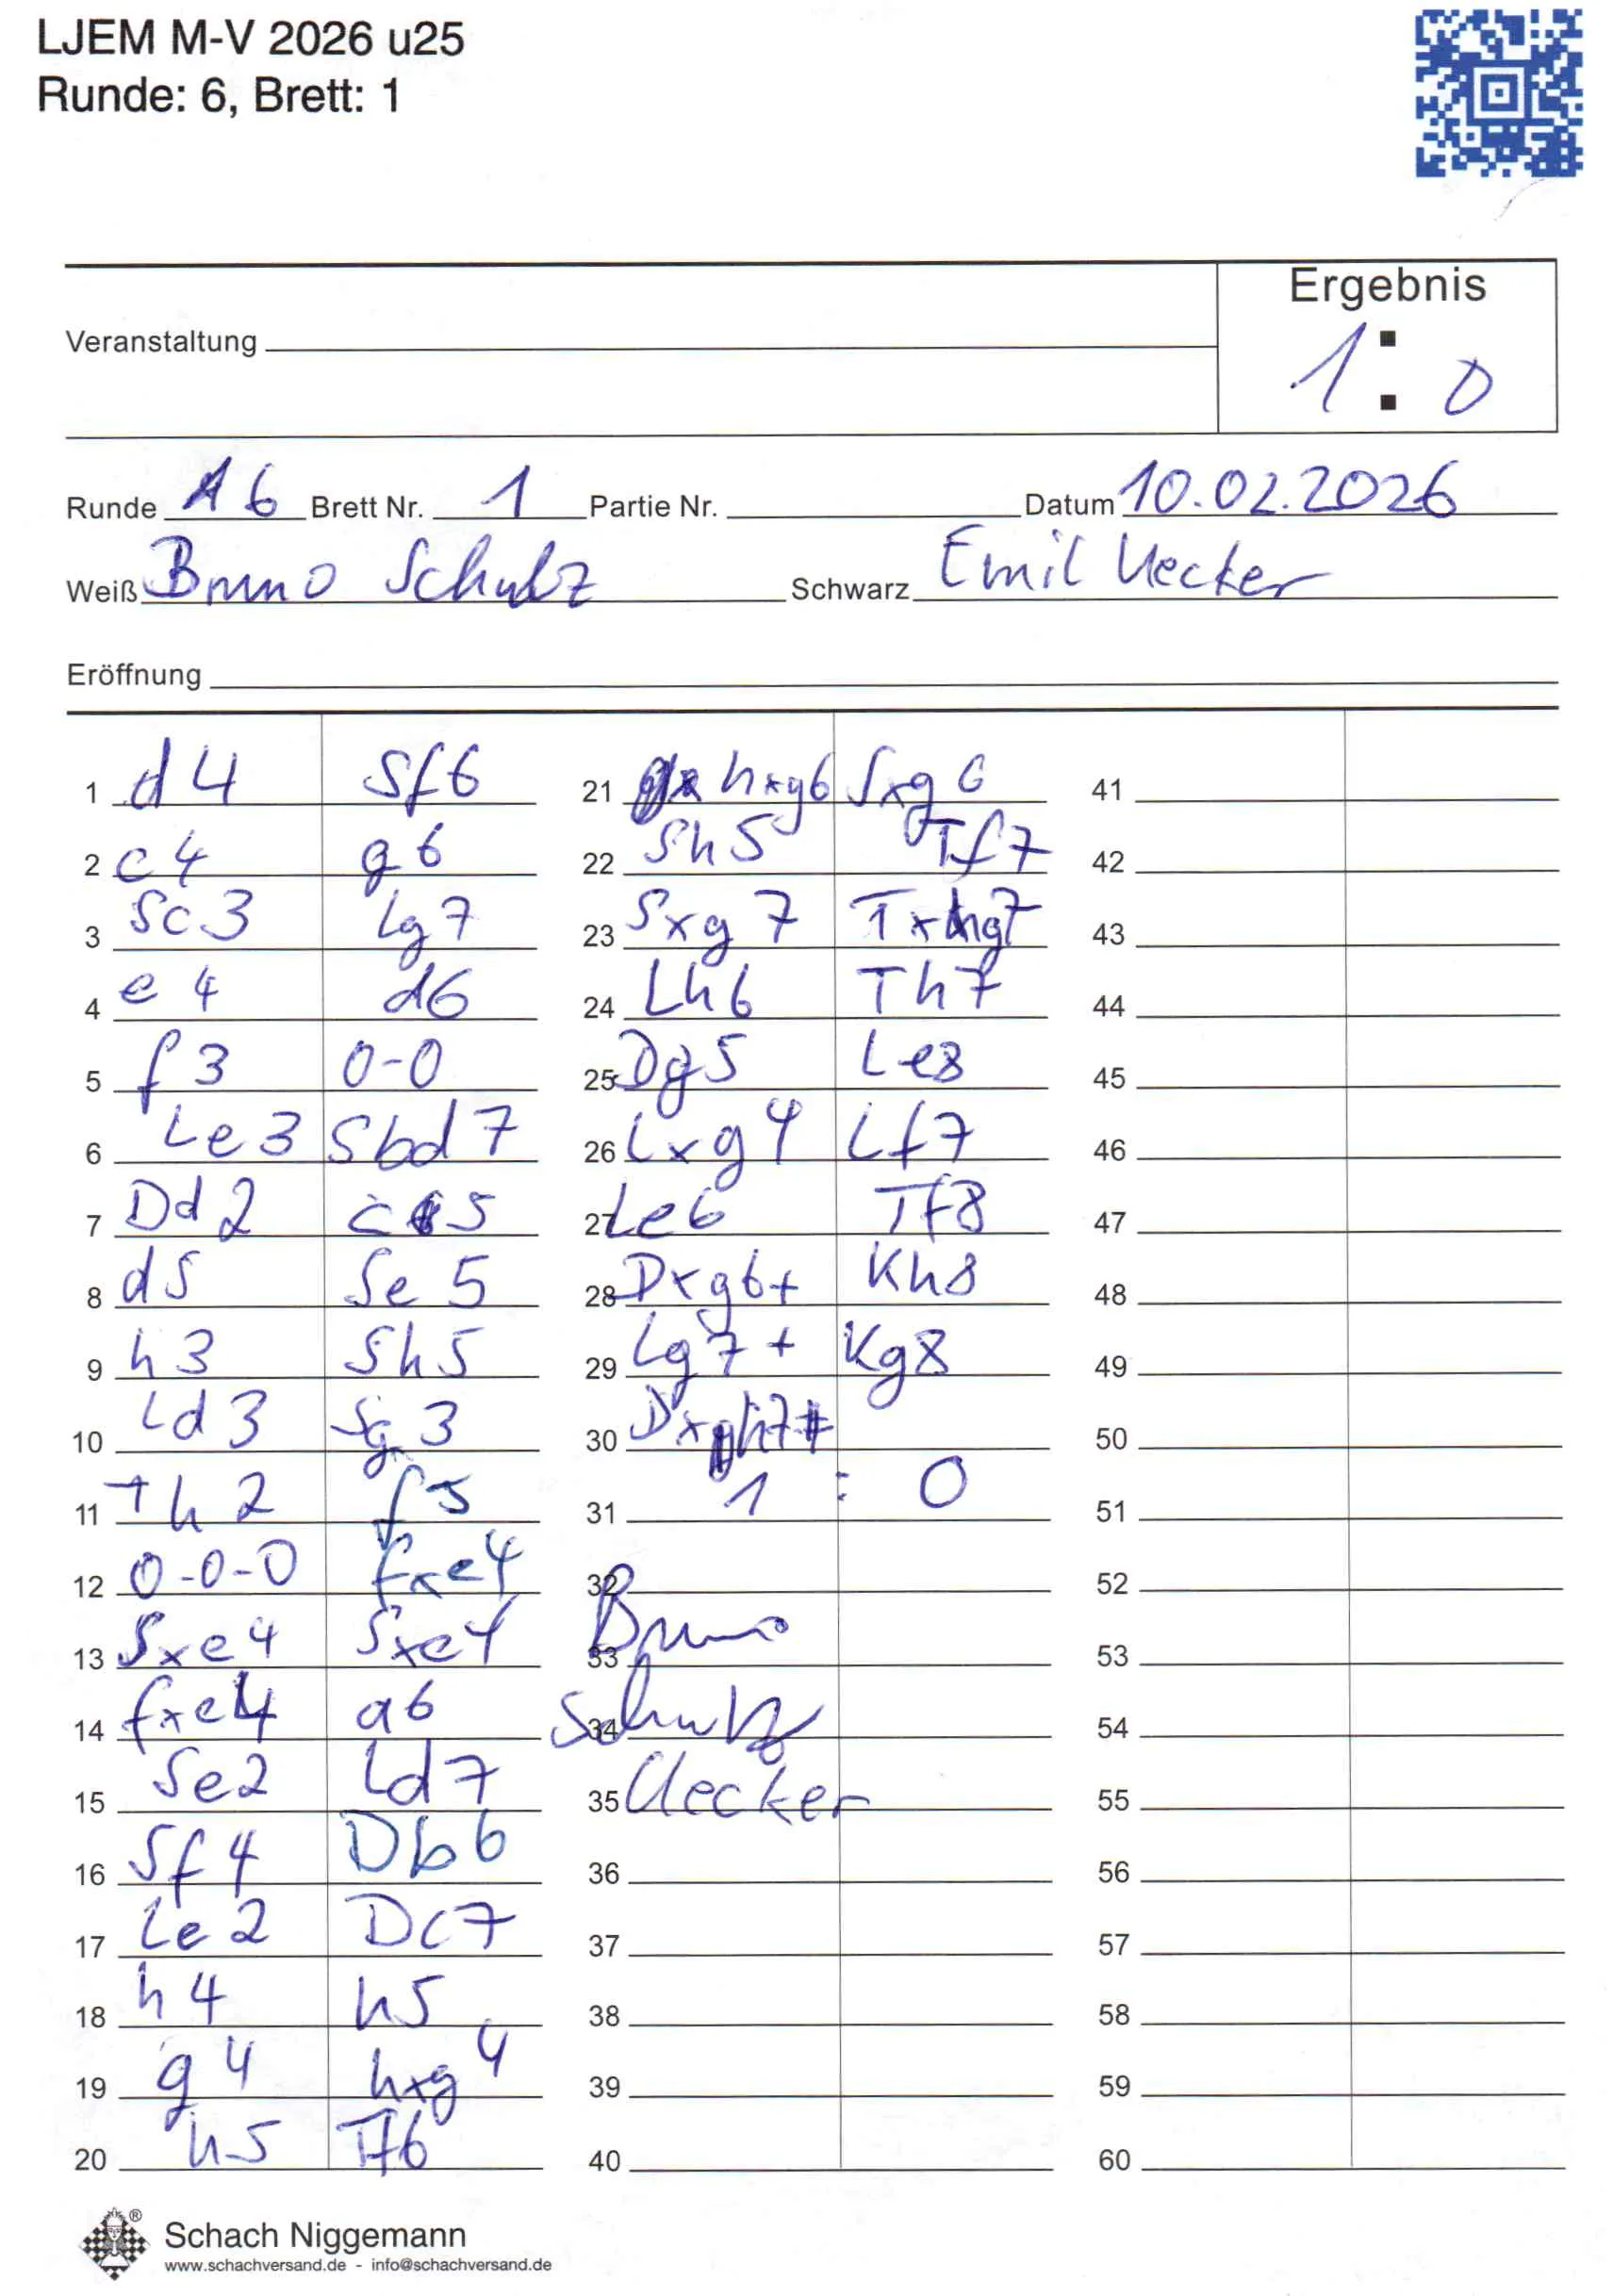 LJEM M-V 2026 u25
Runde: 6, Brett: 1
Ergebnis
1 : 0
Veranstaltung
Runde 6 Brett Nr. 1 Partie Nr. Datum 10.02.2026
Weiß Bruno Schulz Schwarz Emil Uecker
Eröffnung
1 d4 Sf6
2 c4 g6
3 Sc3 Lg7
4 e4 d6
5 f3 0-0
6 Le3 Sbd7
7 Dd2 c5
8 d5 Se5
9 h3 Sh5
10 Ld3 Sg3
11 Th2 f5
12 0-0-0 fxe4
13 Sxe4 Sxe4
14 fxe4 a6
15 Se2 Ld7
16 Sf4 Db6
17 Le2 Dc7
18 h4 h5
19 g4 hxg4
20 h5 Tf6
21 hxg6 Sxg6
22 Sh5 Tf7
23 Sxg7 Txg7
24 Lh6 Th7
25 Dg5 Le8
26 Lxg4 Lf7
27 Le6 Tf8
28 Dxg6+ Kh8
29 Lg7+ Kg8
30 Dxh7#
31 1 : 0
32
33 Bruno
34 Schulz
35 Uecker
36
37
38
39
40
41
42
43
44
45
46
47
48
49
50
51
52
53
54
55
56
57
58
59
60
Schach Niggemann
www.schachversand.de - info@schachversand.de